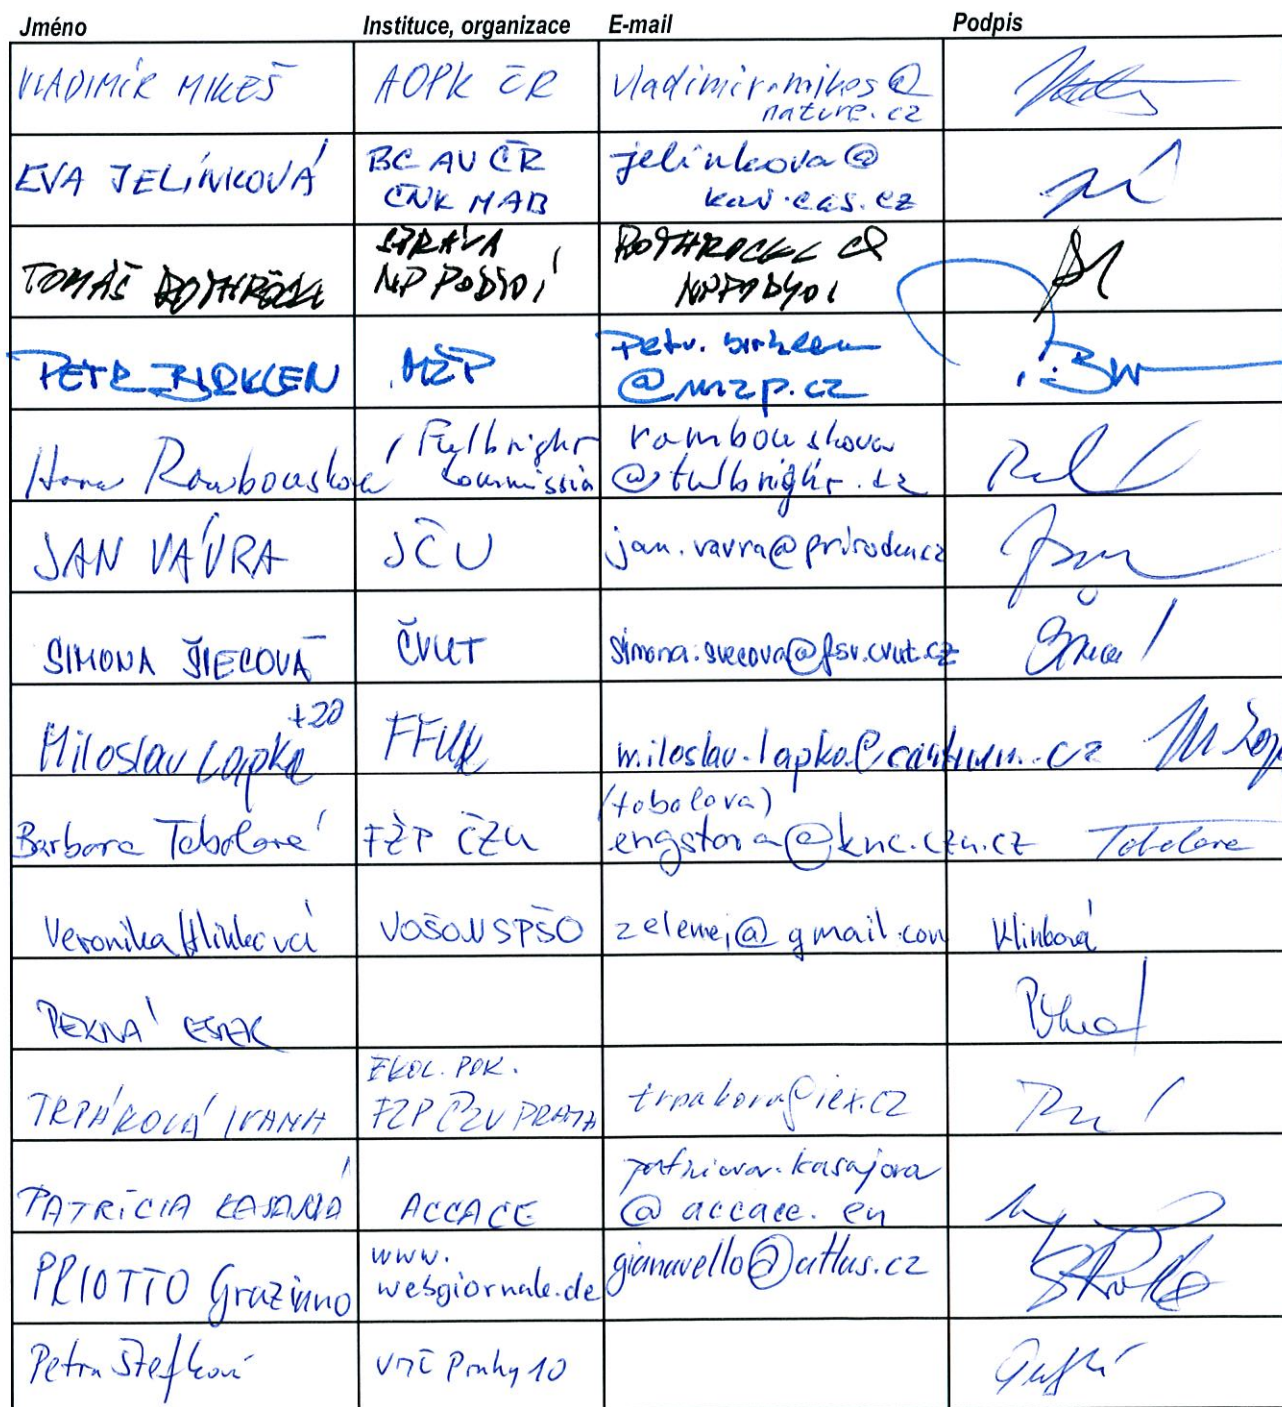 Jméno Instituce, organizace E-mail Podpis
VLADIMÍR MIKEŠ AOPK ČR vladimir.mikes@
nature.cz
EVA JELÍNKOVÁ BC AV ČR jelinkova@
ČNK MAB kav.cas.cz
TOMÁŠ ROTHRÖCKL SPRÁVA ROTHROCKL @
NP PODYJÍ NPPODYJI
PETR BIRKLEN MŽP petr.birklen
@mzp.cz
Hana Rambousková Fulbright rambouskova
Commission @fulbright.cz
JAN VÁVRA JČU jan.vavra@priroden.cz
SIMONA ŠVECOVÁ ČVUT simona.svecova@fsv.cvut.cz
Miloslav Lapka +20 FFUK miloslav.lapka@centrum.cz
(tobolova)
Barbora Tobolová FŽP ČZU engstova@knc.czu.cz Tobolova
Veronika Hlinková VOŠON SPŠO zelenej@gmail.com Hlinková
PEKNÁ
EKOL. POR.
TRPÁKOVÁ IVANA FZP ČZU PRAHA trpakova@iex.cz
PATRÍCIA KASAJOVÁ ACCACE patricia.kasajova
@ accace.eu
PRIOTTO Graziano www. gianavello@atlas.cz
webgiornale.de
Petra Štefková Prahy 10